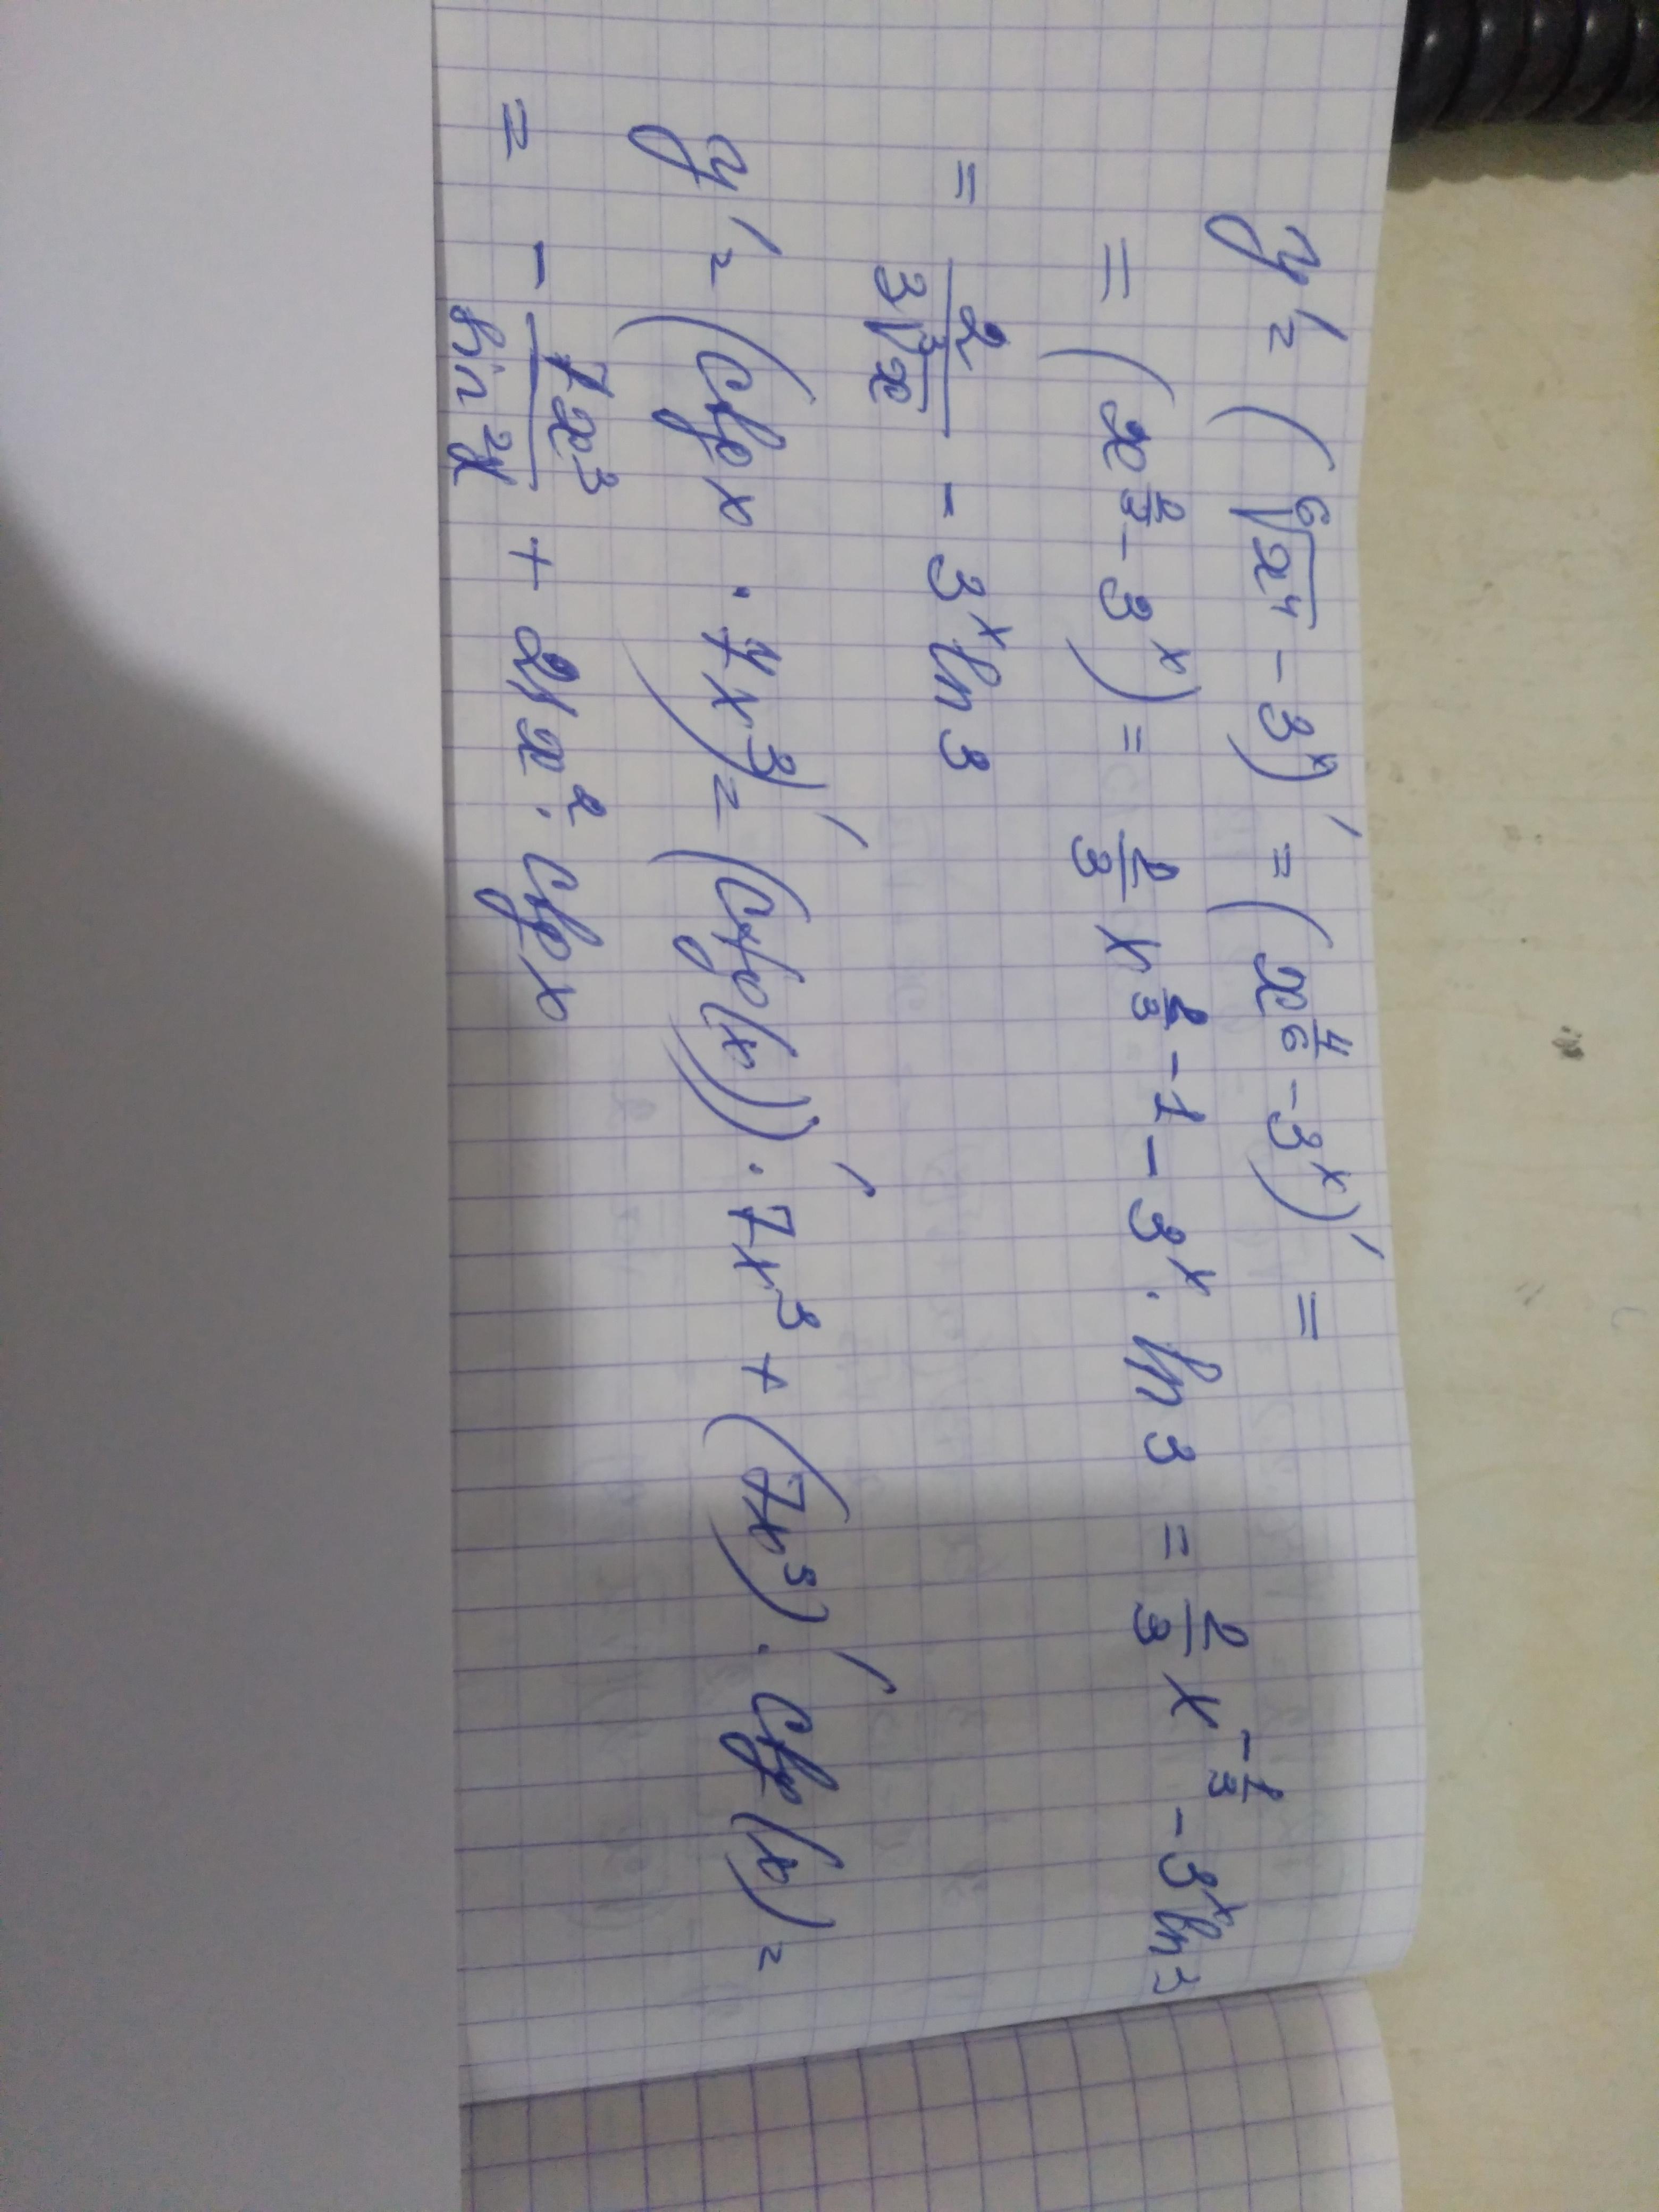 y' = (⁶√x⁴ - 3ˣ)' = (x^(4/6) - 3ˣ)' =
= (x^(2/3) - 3ˣ) = 2/3 x^(2/3 - 1) - 3ˣ · ln 3 = 2/3 x^(-1/3) - 3ˣ ln 3
= 2/(3 ³√x) - 3ˣ ln 3
y' = (ctg x · 7x³)' = (ctg(x))' · 7x³ + (7x³)' · ctg(x) =
= - 7x³/sin²x + 21x² · ctg x